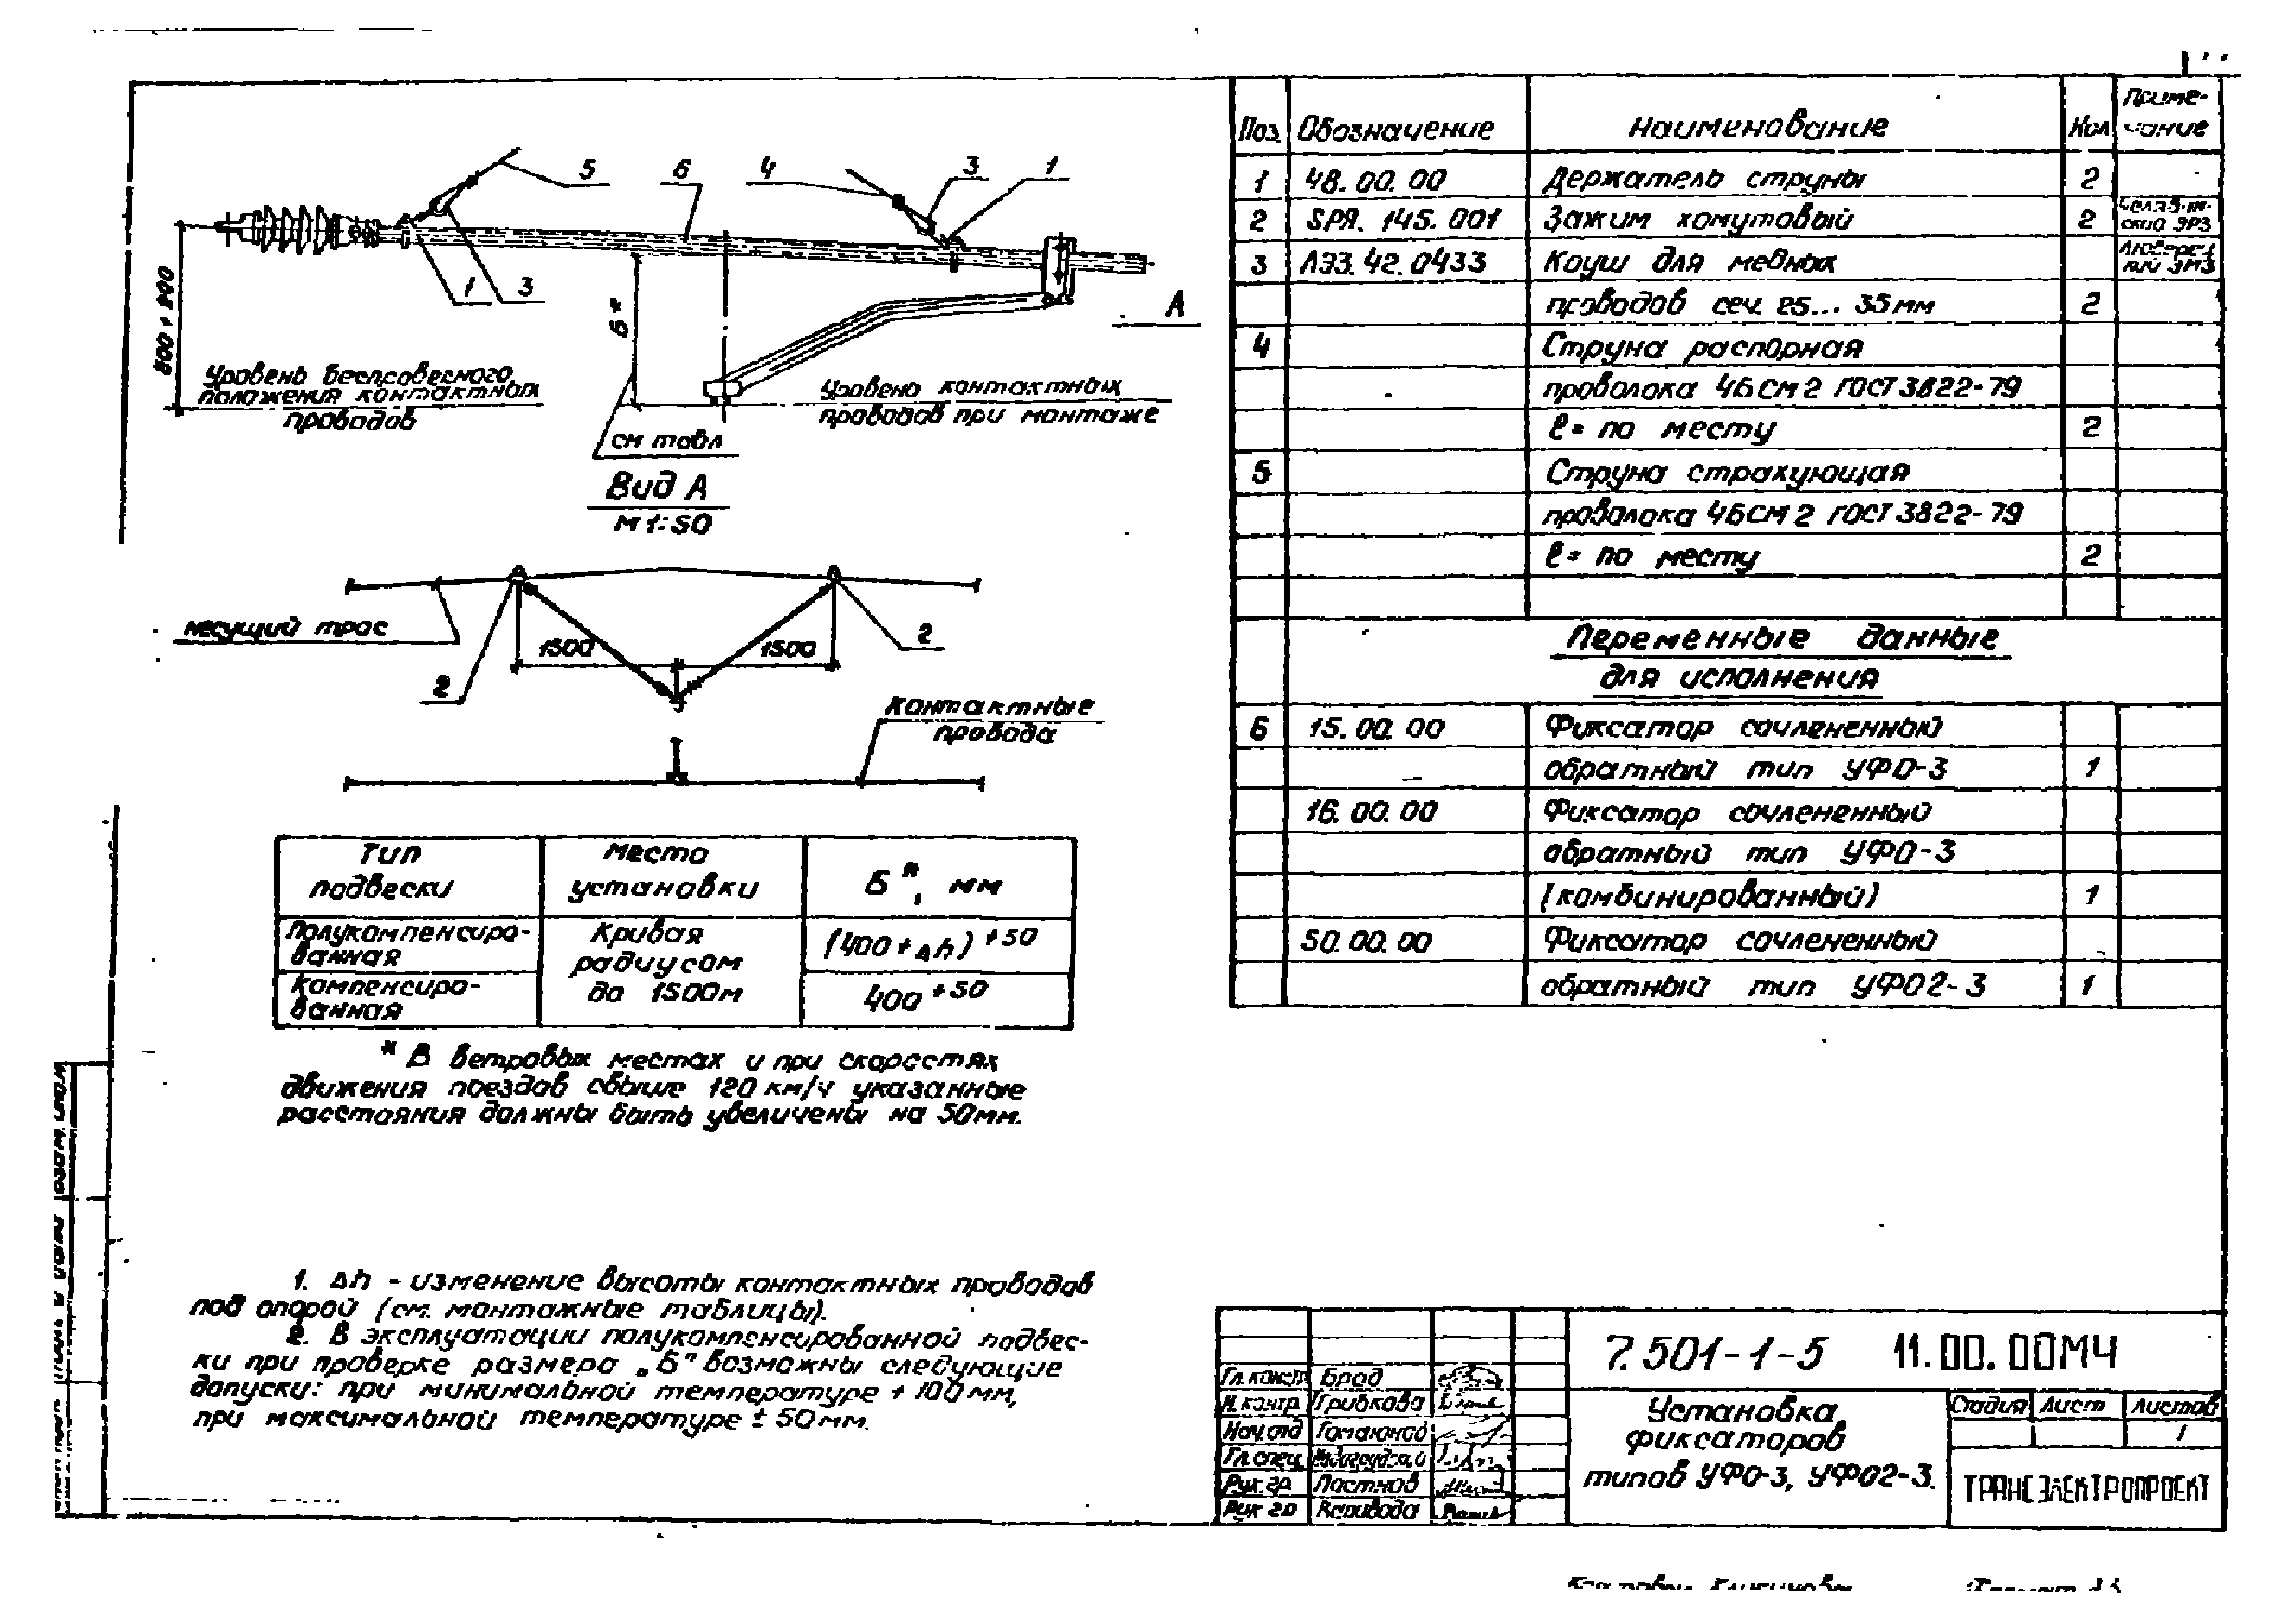 5
6
4
3
1
1
3
Б*
А
Уровень беспровесного
положения контактных
проводов
Уровень контактных
проводов при монтаже
см табл
Вид А
М 1:50
несущий трос
1500
1500
2
2
контактные
провода
Тип подвески
Место установки
Б*, мм
Полукомпенсиро-
ванная
Кривая
радиусом
до 1500м
(400+Δh)+50
Компенсиро-
ванная
400+50
* В ветровых местах и при скоростях
движения поездов свыше 120 км/ч указанные
расстояния должны быть увеличены на 50мм.
1. Δh - изменение высоты контактных проводов
под опорой (см. монтажные таблицы).
2. В эксплуатации полукомпенсированной подвес-
ки при проверке размера „Б" возможны следующие
допуски: при минимальной температуре + 100мм,
при максимальной температуре ± 50мм.
Поз. Обозначение Наименование Кол Приме-
чание
1 48.00.00 Держатель струны 2
2 SPЯ. 145.001 Зажим хомутовый 2
3 ЛЭЗ.42.0433 Коуш для медных
проводов сеч. 25... 35мм 2
4 Струна распорная
проволока 4БСМ2 ГОСТ 3822-79
ℓ= по месту 2
5 Струна страхующая
проволока 4БСМ2 ГОСТ 3822-79
ℓ= по месту 2
Переменные данные
для исполнения
6 15.00.00 Фиксатор сочлененный
обратный тип УФО-3 1
16.00.00 Фиксатор сочлененный
обратный тип УФО-3
(комбинированный) 1
50.00.00 Фиксатор сочлененный
обратный тип УФО2-3 1
7.501-1-5 11.00.00МЧ
Гл.констр Брод
Н.контр. Грибкова
Нач.отд
Гл.спец.
Рук.гр Постнов
Рук гр
Установка
фиксаторов
типов УФО-3, УФО2-3.
Стадия Лист Листов
1
ТРАНСЭЛЕКТРОПРОЕКТ